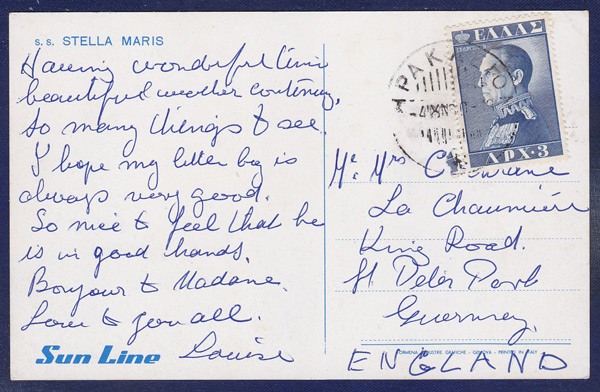 s.s. STELLA MARIS
Having wonderful time
beautiful weather continuing,
so many things to see.
I hope my letter boy is
always very good.
So nice to feel that he
is in good hands.
Bonjour to Madame.
Love to you all.
Louise
Sun Line
ΕΛΛΑΣ
ΔΡΧ·3
Mr. Mrs
La Chaumière
King Road.
St Peter Port
Guernsey,
ENGLAND
GENOVA - PRINTED IN ITALY